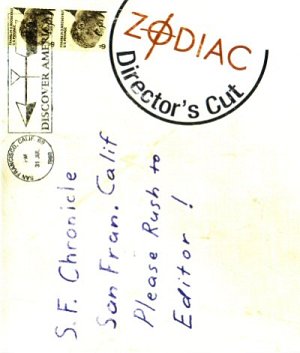 ZODIAC
Director's Cut
DISCOVER AMERICA
SAN FRANCISCO, CALIF
PM
31 JUL
1969
S.F. Chronicle
San Fran. Calif
Please Rush to
Editor !